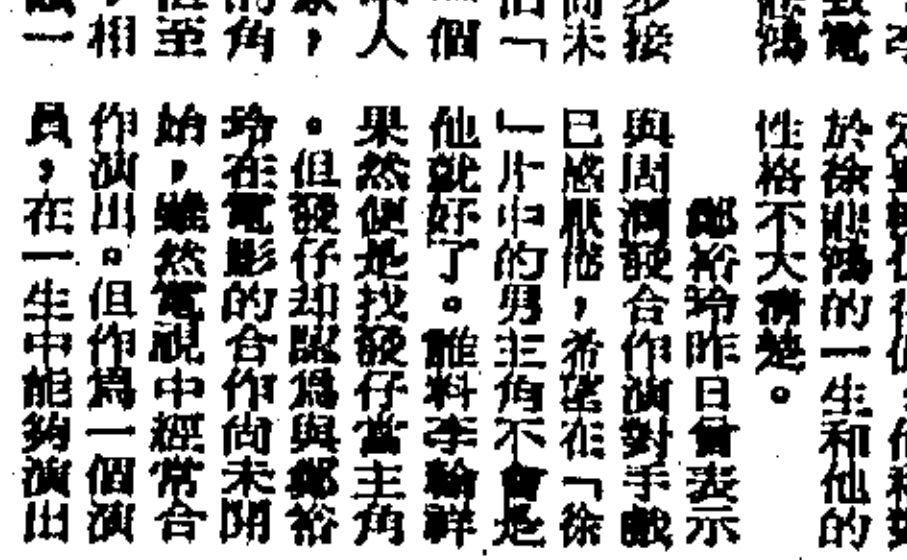 電
鴻
接
未
「
個
人
，
角
至
相
一
於徐悲鴻的一生和他的
性格不大清楚。
鄭裕玲昨日曾表示
與周潤發合作演對手戲
已感厭倦，希望在「徐
」片中的男主角不會是
他就好了。誰料李翰祥
果然便是找發仔當主角
。但發仔却認爲與鄭裕
玲在電影的合作尚未開
始，雖然電視中經常合
作演出。但作爲一個演
員，在一生中能夠演出